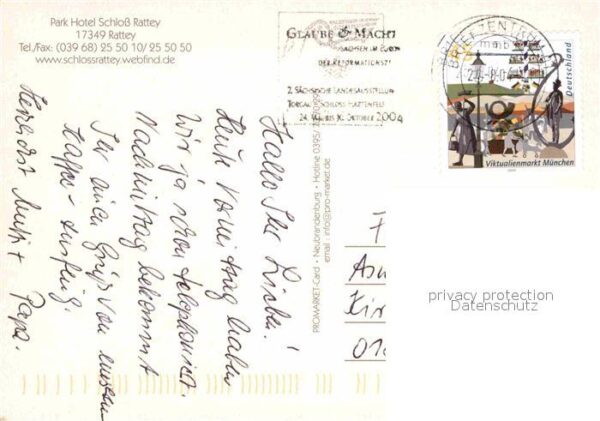 Park Hotel Schloß Rattey
17349 Rattey
Tel./Fax: (039 68) 25 50 10/ 25 50 50
www.schlossrattey.webfind.de
GLAUBE & MACHT
SACHSEN IM EUROPA
DER REFORMATIONSZEIT
2. SÄCHSISCHE LANDESAUSSTELLUNG
TORGAU, SCHLOSS HARTENFELS
24. MAI BIS 10. OKTOBER 2004
BRIEFZENTRUM
Deutschland
Viktualienmarkt München
Hallo Ihr Lieben!
Heute Vormittag haben
wir ja schon telephoniert.
Nachmittag bekommt
Ihr nun Gruß von unserem
Kaffee-
Herzlichst Papa.
PROMARKET-Card • Neubrandenburg • Hotline 0395/
email: info@pro-market.de
F
Am
Kir
01
privacy protection
Datenschutz